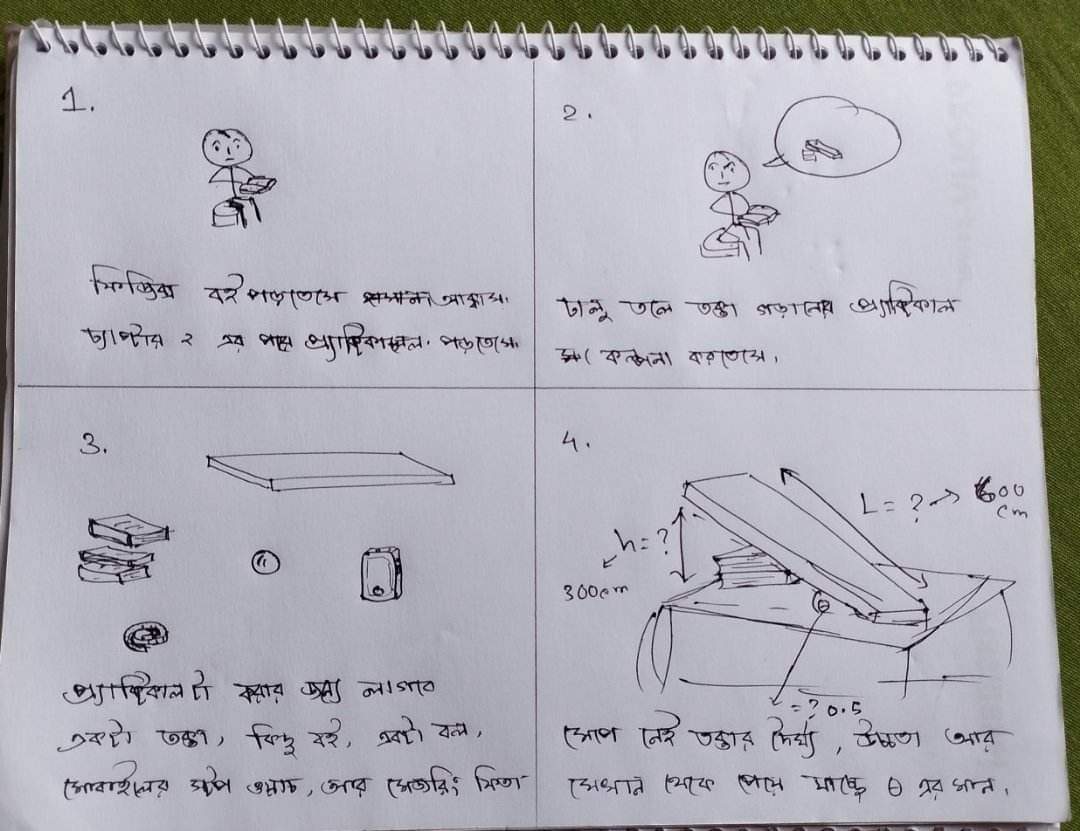 1.
ফিজিক্স বই পড়তেসে আক্কাস।
চ্যাপ্টার ২ এর প্র্যাক্টিকাল পড়তেসে।
2.
ঢালু তলে তক্তা গড়ানোর প্র্যাক্টিকাল
কল্পনা করতেসে।
3.
প্র্যাক্টিকালটা করার জন্য লাগবে
একটা তক্তা, কিছু বই, একটা বল,
মোবাইলের স্টপ ওয়াচ, আর মেজারিং ফিতা
4.
L = ? → 600
cm
h = ?
300cm
θ
= ? 0.5
মেপে নেই তক্তার দৈর্ঘ্য, উচ্চতা আর
সেখান থেকে পেয়ে যাচ্ছে θ এর মান।